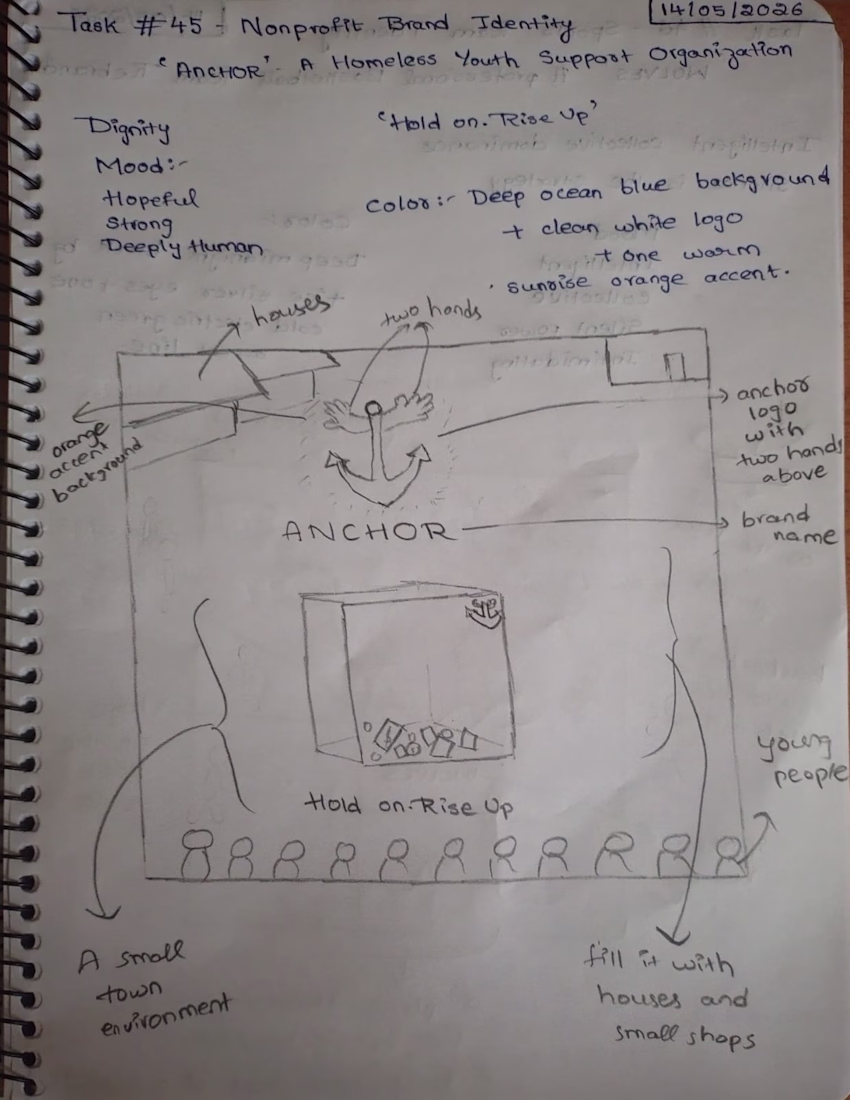 14/05/2026
Task #45 - Nonprofit Brand Identity
'ANCHOR'- A Homeless Youth Support Organization
Dignity
Mood:-
Hopeful
Strong
Deeply Human
'Hold on. Rise Up'
Color:- Deep ocean blue background
+ clean white logo
+ one warm
sunrise orange accent.
houses
two hands
orange
accent
background
anchor
logo
with
two hands
above
ANCHOR
brand
name
young
people
Hold on. Rise Up
A small
town
environment
fill it with
houses and
small shops